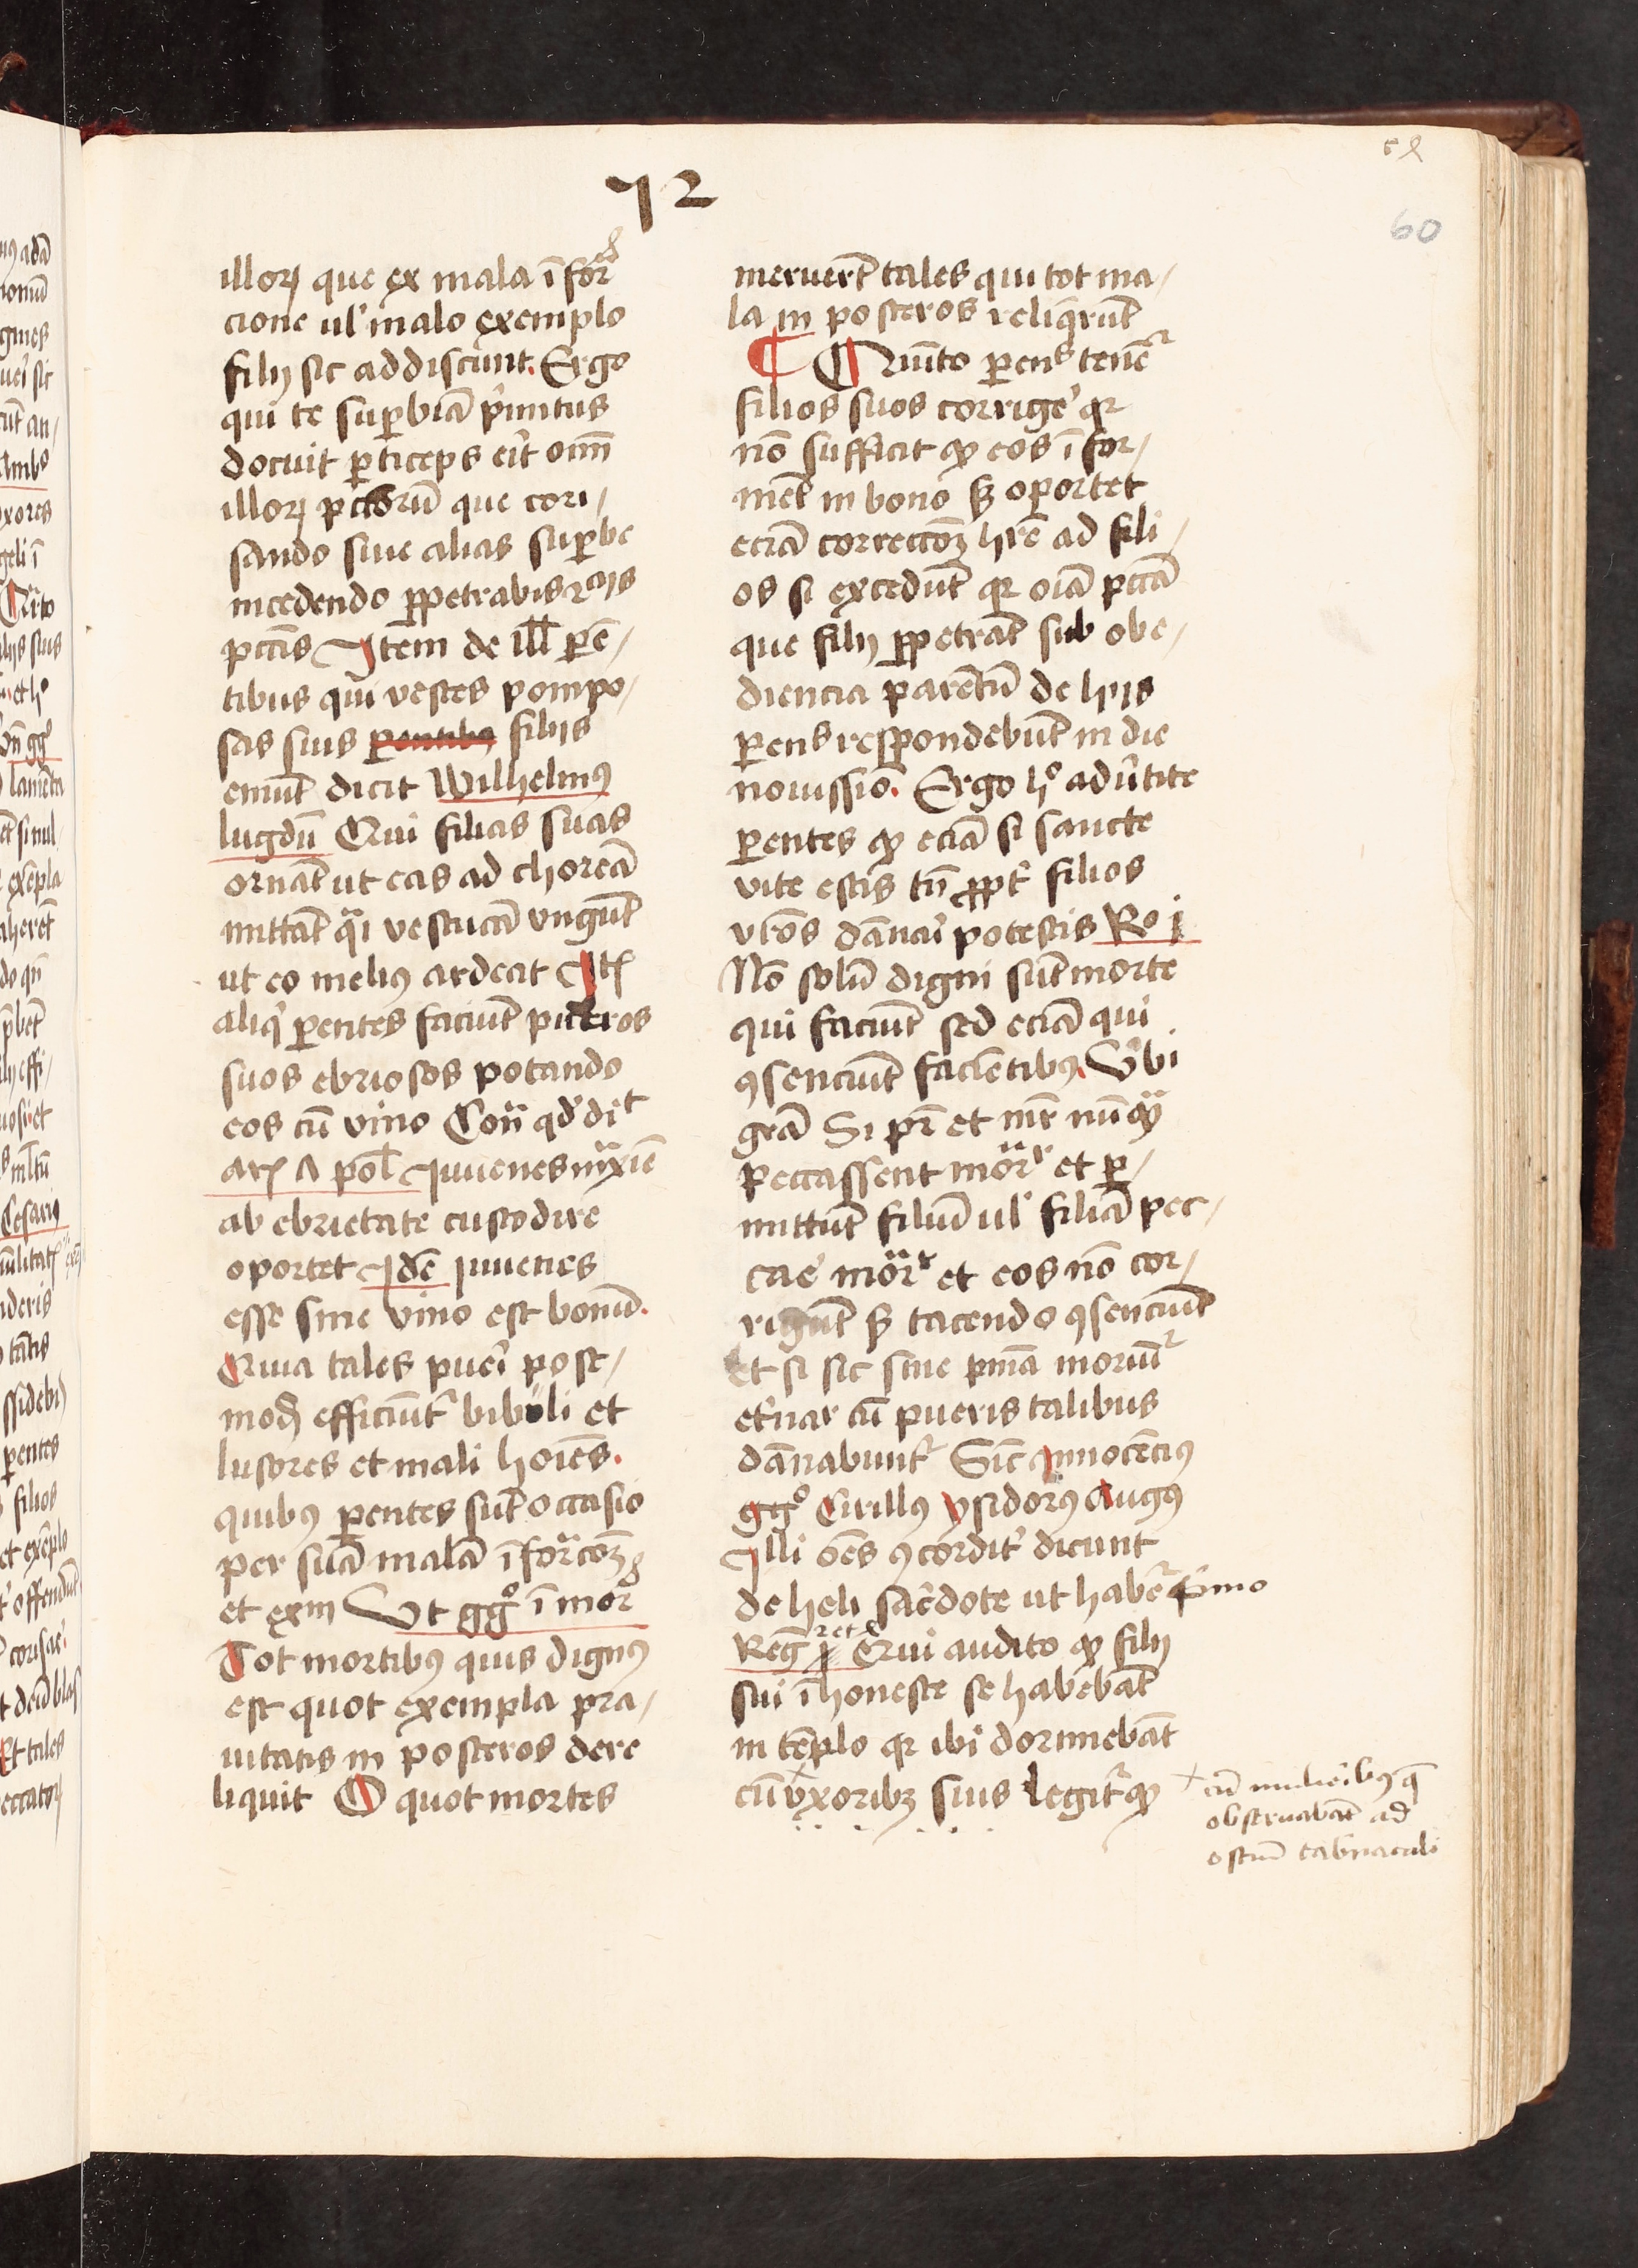 72
60
illorꝝ que ex mala īfor̄a
cione ul' malo exemplo
filij sic addiscunt. Ergo
qui te suꝑbiā p'mitus
docuit ꝑticeps eīt oīm
illorꝝ pctōrū que cori/
sando siue alias suꝑbe
incedendo ꝑpetrabis
pctīs Item de ill ꝑē/
tibus qui vestes pompo/
sas suis filijs
emūt dicit Wilhelmꝰ
lugdūn Qui filias suas
ornāt ut eas ad choreā
mittāt q̄i vesticā vngūt
ut eo meliꝰ ardeat Itē
aliq' ꝑentes faciūt pueros
suos ebriosos potando
eos cū vino Con̄ qd' dit
Ar̄ A pol Iuuenes mͣxīe
ab ebrietate custodire
oportet Idē iuuenes
esse sine vino est bonū.
Quia tales pueī post/
modū efficiūt' bibuli et
lusores et mali hoīēs.
quibꝰ ꝑentes sūt occasio
per suā malā īfor̄acōꝫ
et exm Vt ggº ī mor̄
Tot mortibꝰ quis dignꝰ
est quot exempla pra/
uitatis in posteros dere
liquit O quot mortes
meruerūt tales qui tot ma/
la in posteros reliq̄rūt
Quīto ꝑens tenēt'
filios suos corrigē' qꝛ
nō sufficit ꝙ eos īfor/
mēt in bono sꝫ oportet
eciā correccōꝫ hr̄e ad fili/
os si excedūt qꝛ oīa pctā
que filij ꝑpetrāt sub obe/
diencia parētū de hijs
ꝑens respondebūt in die
nouissīo. Ergo hº adūtite
ꝑentes ꝙ eciā si sancte
vite estis tn̄ ꝓpt' filios
vr̄os dānaī potestis Ro j
Nō solū digni sūt morte
qui faciūt sed eciā qui
ꝯsenciūt faciētibꝰ. V'bi
gr̄a Si pr̄ et mr̄ nūqͣ
peccassent mor̄r et ꝑ/
mittūt filiū ul' filiā pec/
cāē mor̄r et eos nō cor/
rigūt sꝫ tacendo ꝯsenciūt
Et si sic sine pn̄ia moriūt'
et'nar cū pueris talibus
dānabunt' Sic Innocēciꝰ
ggº Cirillꝰ ysidorꝰ Augꝰ
Illi oēs ꝯcordit' dicunt
de heli sac̄dote ut habēt' pimo
Reg Qui audito ꝙ filij
sui īhoneste se habēbāt
in tēplo qꝛ ibi dormiebāt
cū vxoribꝫ suis legit' ꝙ
cū mulieribꝰ q̄
obseruabāt ad
ostiū tab'naculi